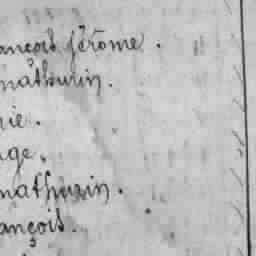 ançois jérôme.
mathurin.
rie.
nge.
mathurin.
ançois.